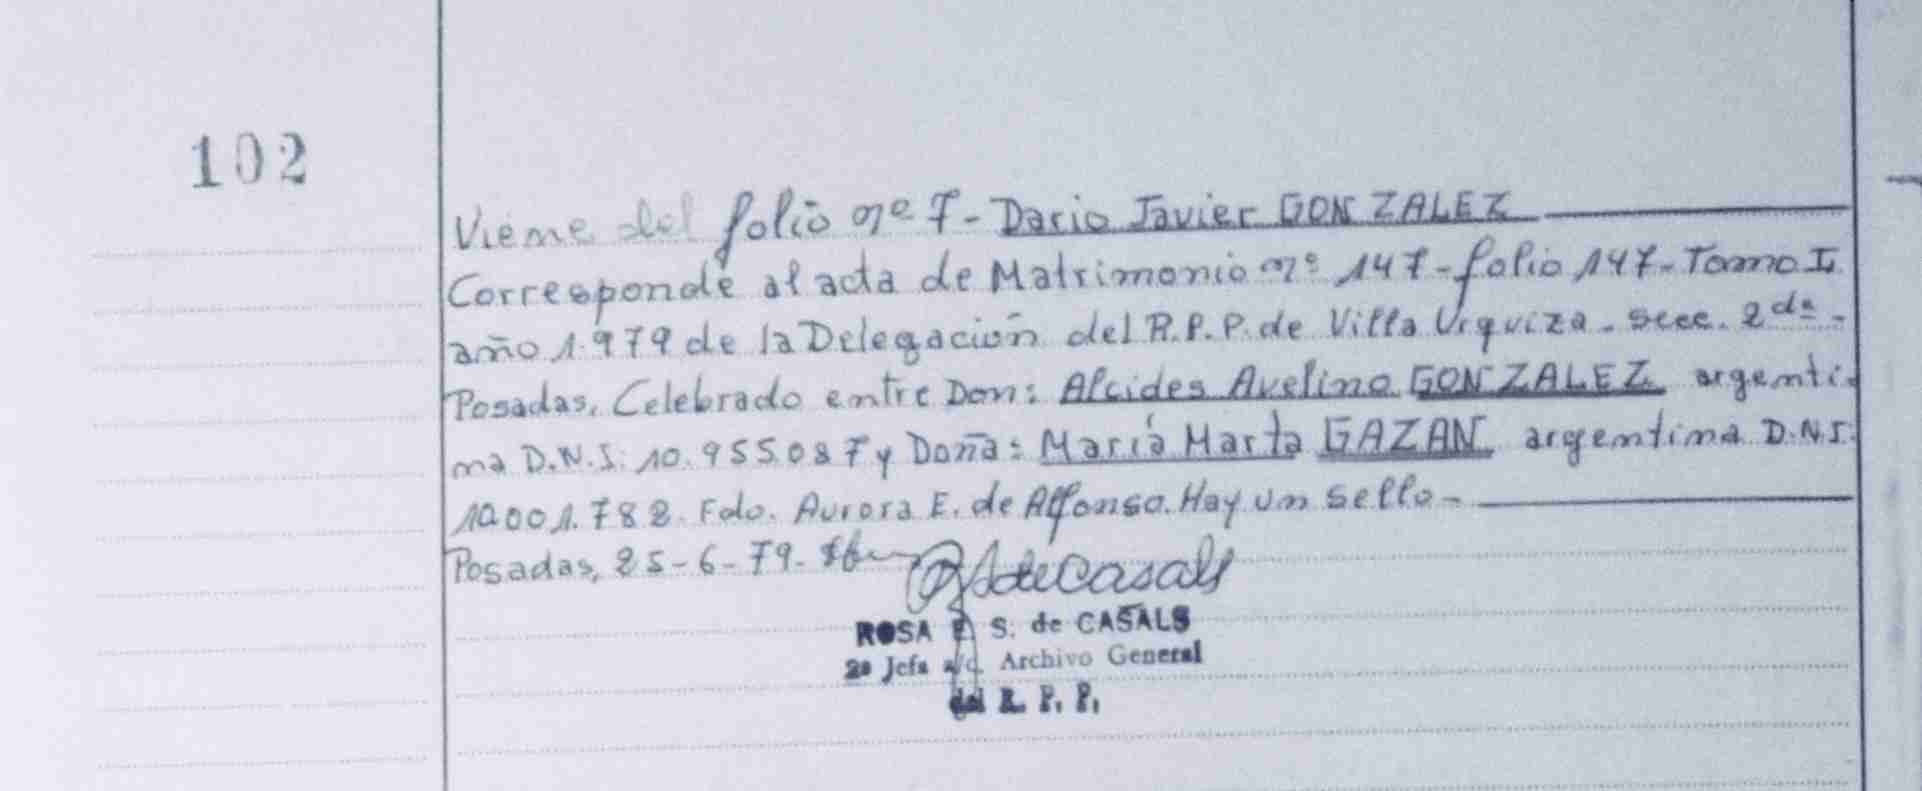 102
Viene del folio nº 7- Dario Javier GONZALEZ
Corresponde al acta de Matrimonio nº 147-folio 147-Tomo I
año 1.979 de la Delegación del R.P.P. de Villa Urquiza. secc. 2da-
Posadas, Celebrado entre Don: Alcides Avelino GONZALEZ argenti-
no D.N.I: 10.955.087 y Doña: María Marta GAZAN argentina D.N.I:
10.001.782. Fdo. Aurora E. de Affonso. Hay un sello-
Posadas, 25-6-79-
deCasals
ROSA E. S. de CASALS
2ª Jefa a/c. Archivo General
del R. P. P.